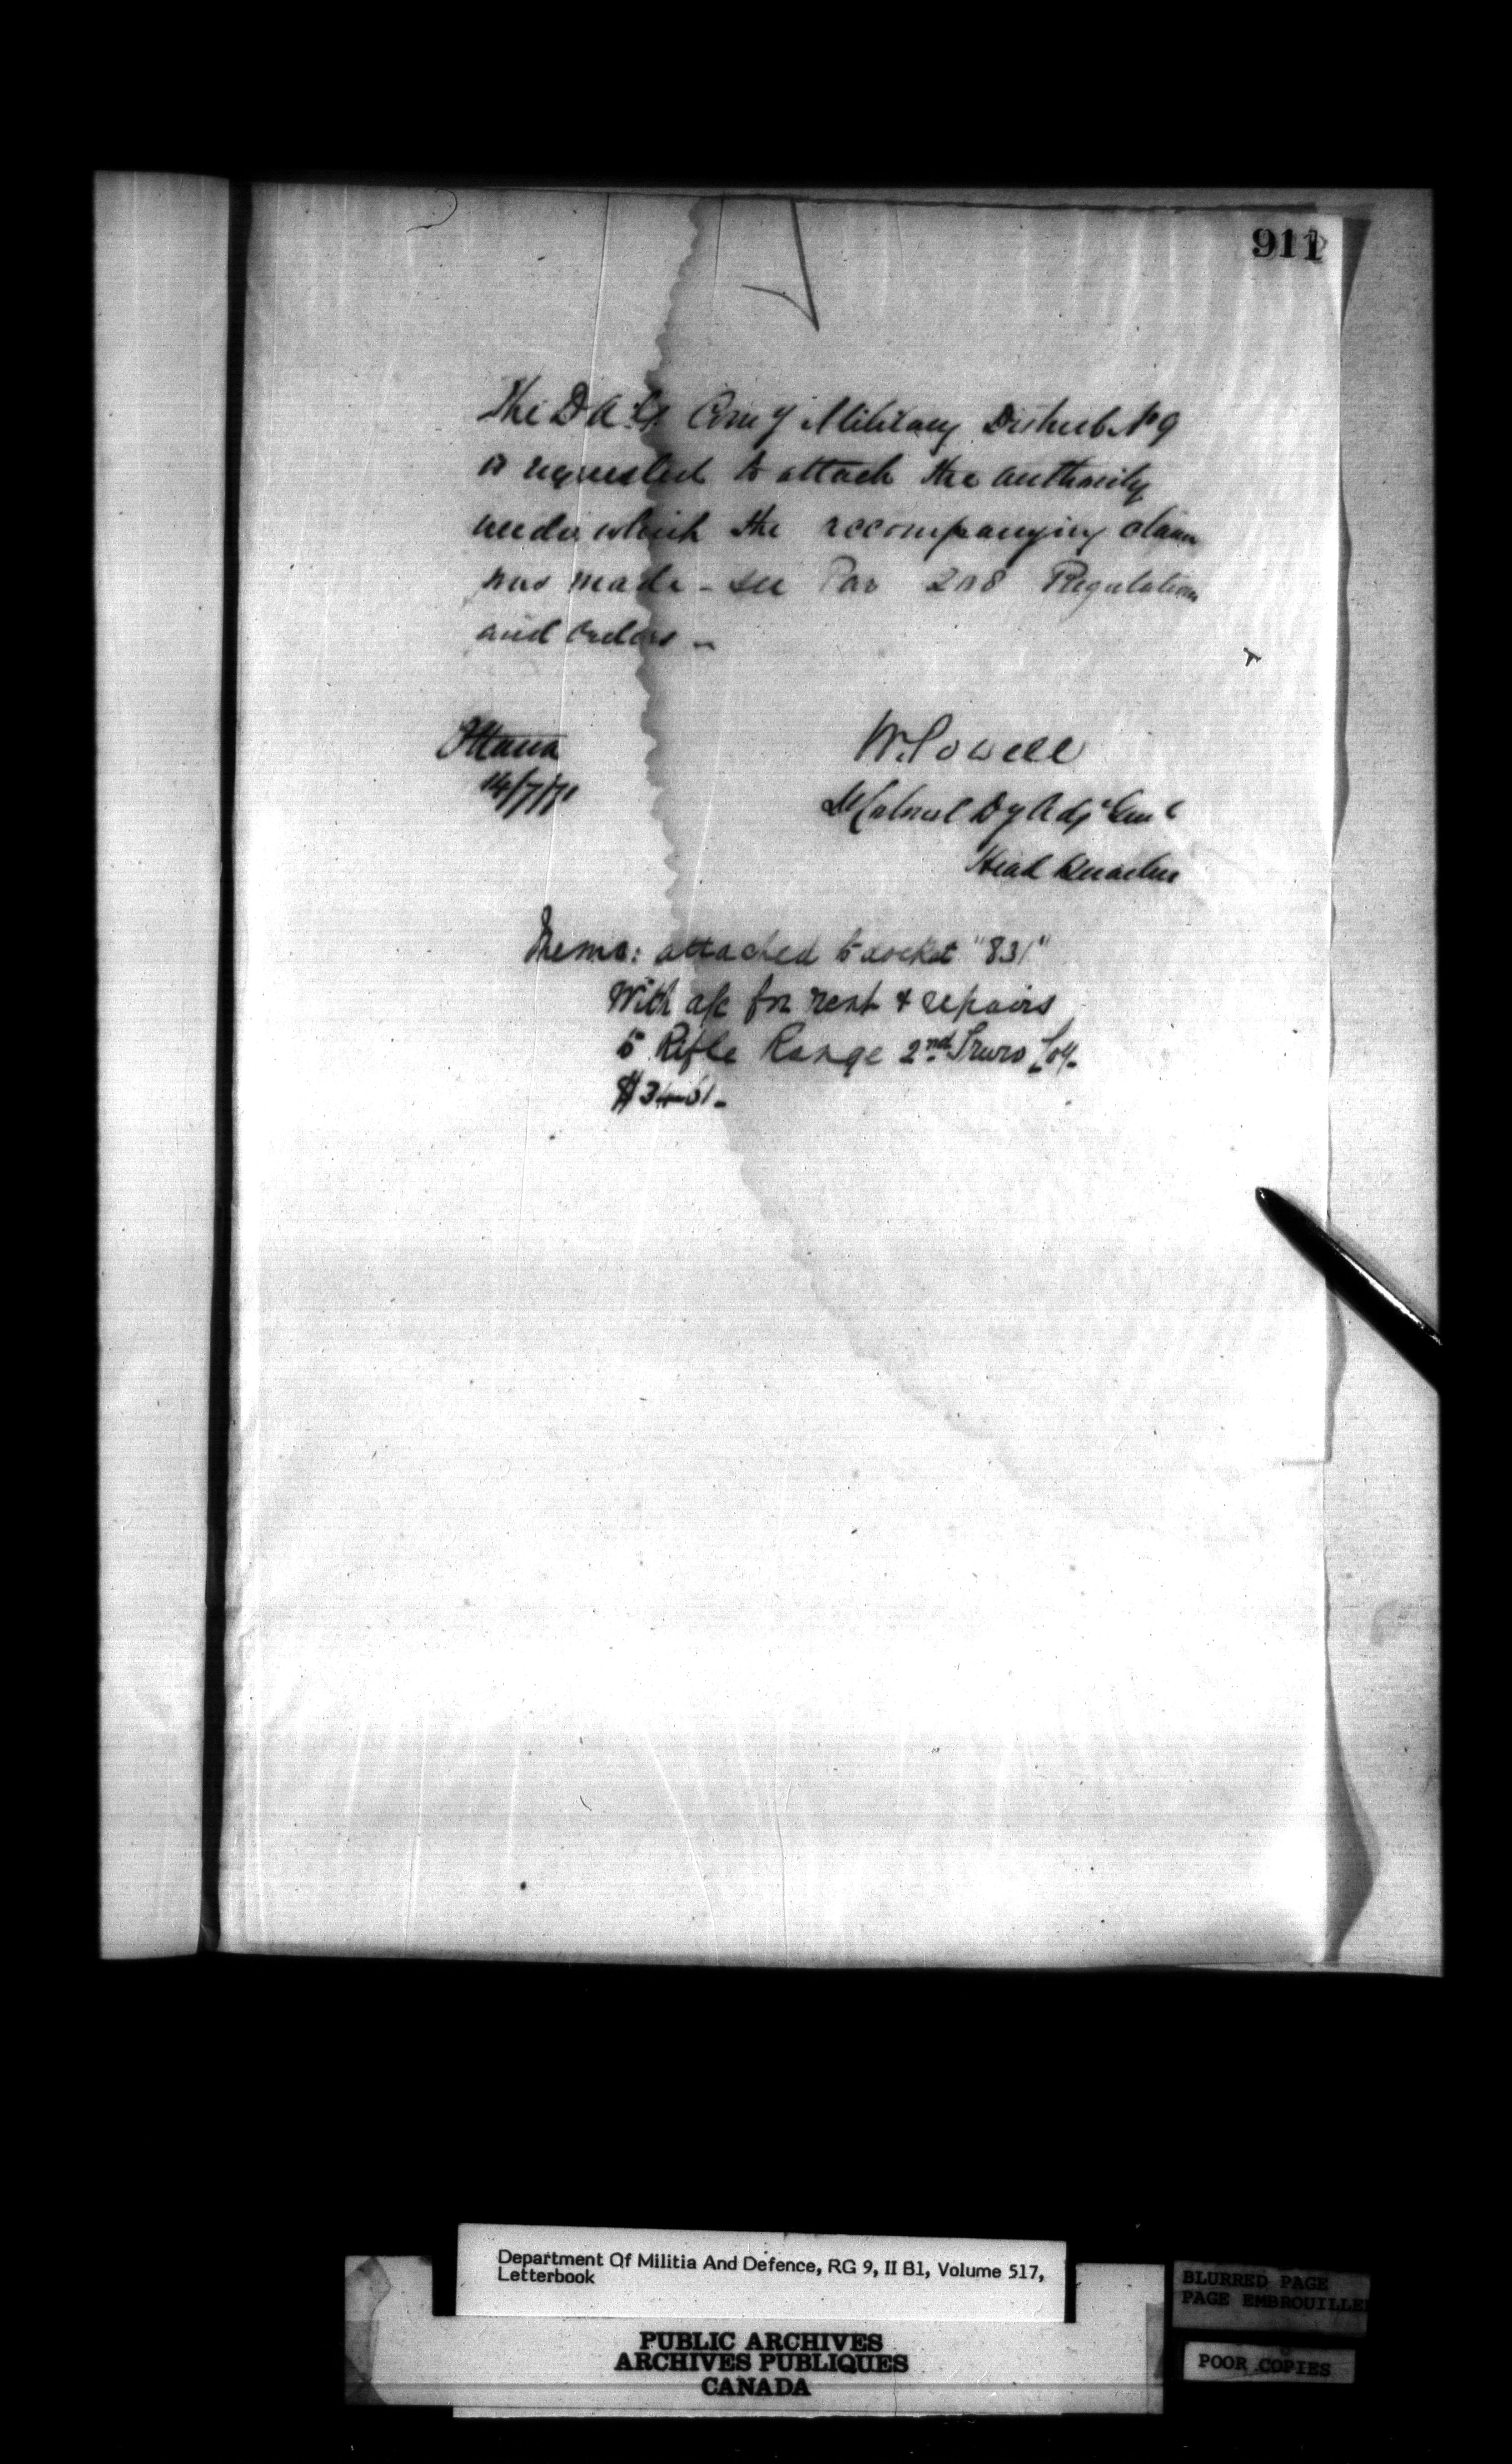 911
The D A G. Com g Military District No 9
is requested to attach the authority
under which the accompanying claim
was made - see Par 208 Regulations
and Orders -
Ottawa
14/7/71
W. Powell
Lt Colonel Dy Adjt Genl
Head Quarters
Memo: attached to docket "831"
With a/c for rent & repairs
to Rifle Range 2nd Truro Coy.
Department Of Militia And Defence, RG 9, II B1, Volume 517,
Letterbook
PUBLIC ARCHIVES
ARCHIVES PUBLIQUES
CANADA
BLURRED PAGE
PAGE EMBROUILLEE
POOR COPIES